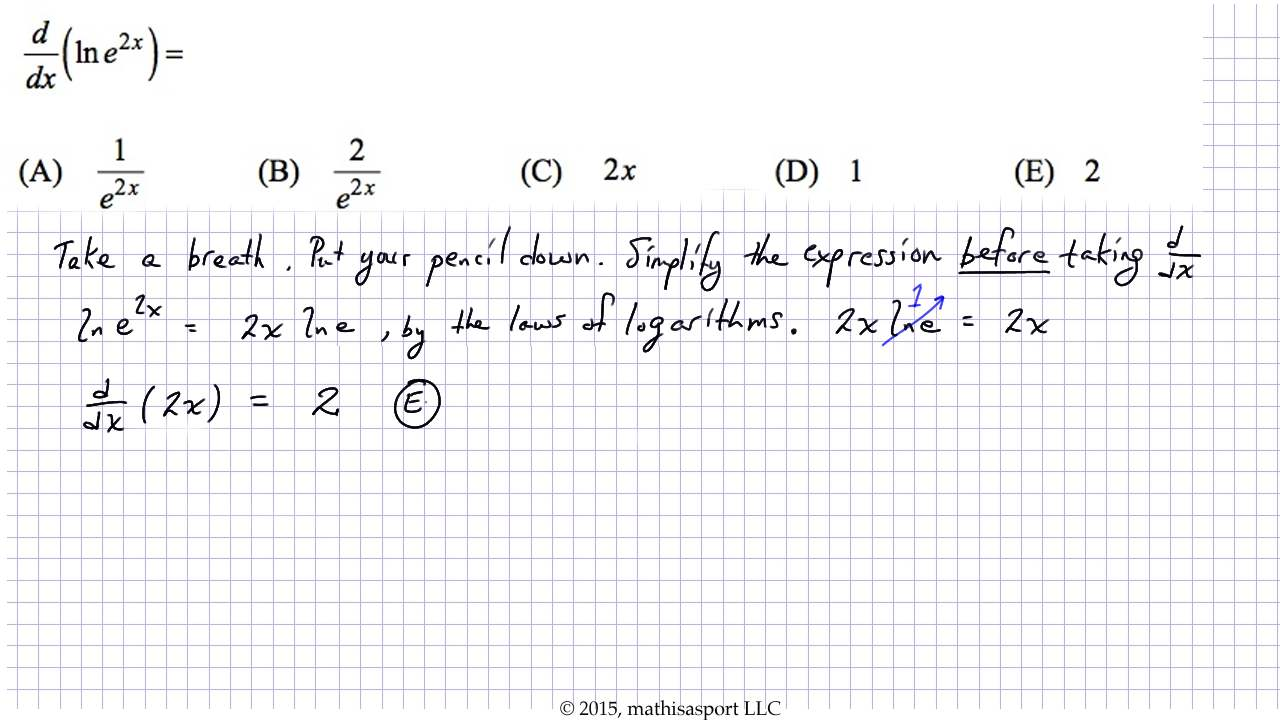 d/dx (ln e^{2x}) =
(A) 1/e^{2x} (B) 2/e^{2x} (C) 2x (D) 1 (E) 2
Take a breath. Put your pencil down. Simplify the expression before taking d/dx
ln e^{2x} = 2x ln e, by the laws of logarithms. 2x ln e 1 = 2x
d/dx (2x) = 2 E
© 2015, mathisasport LLC